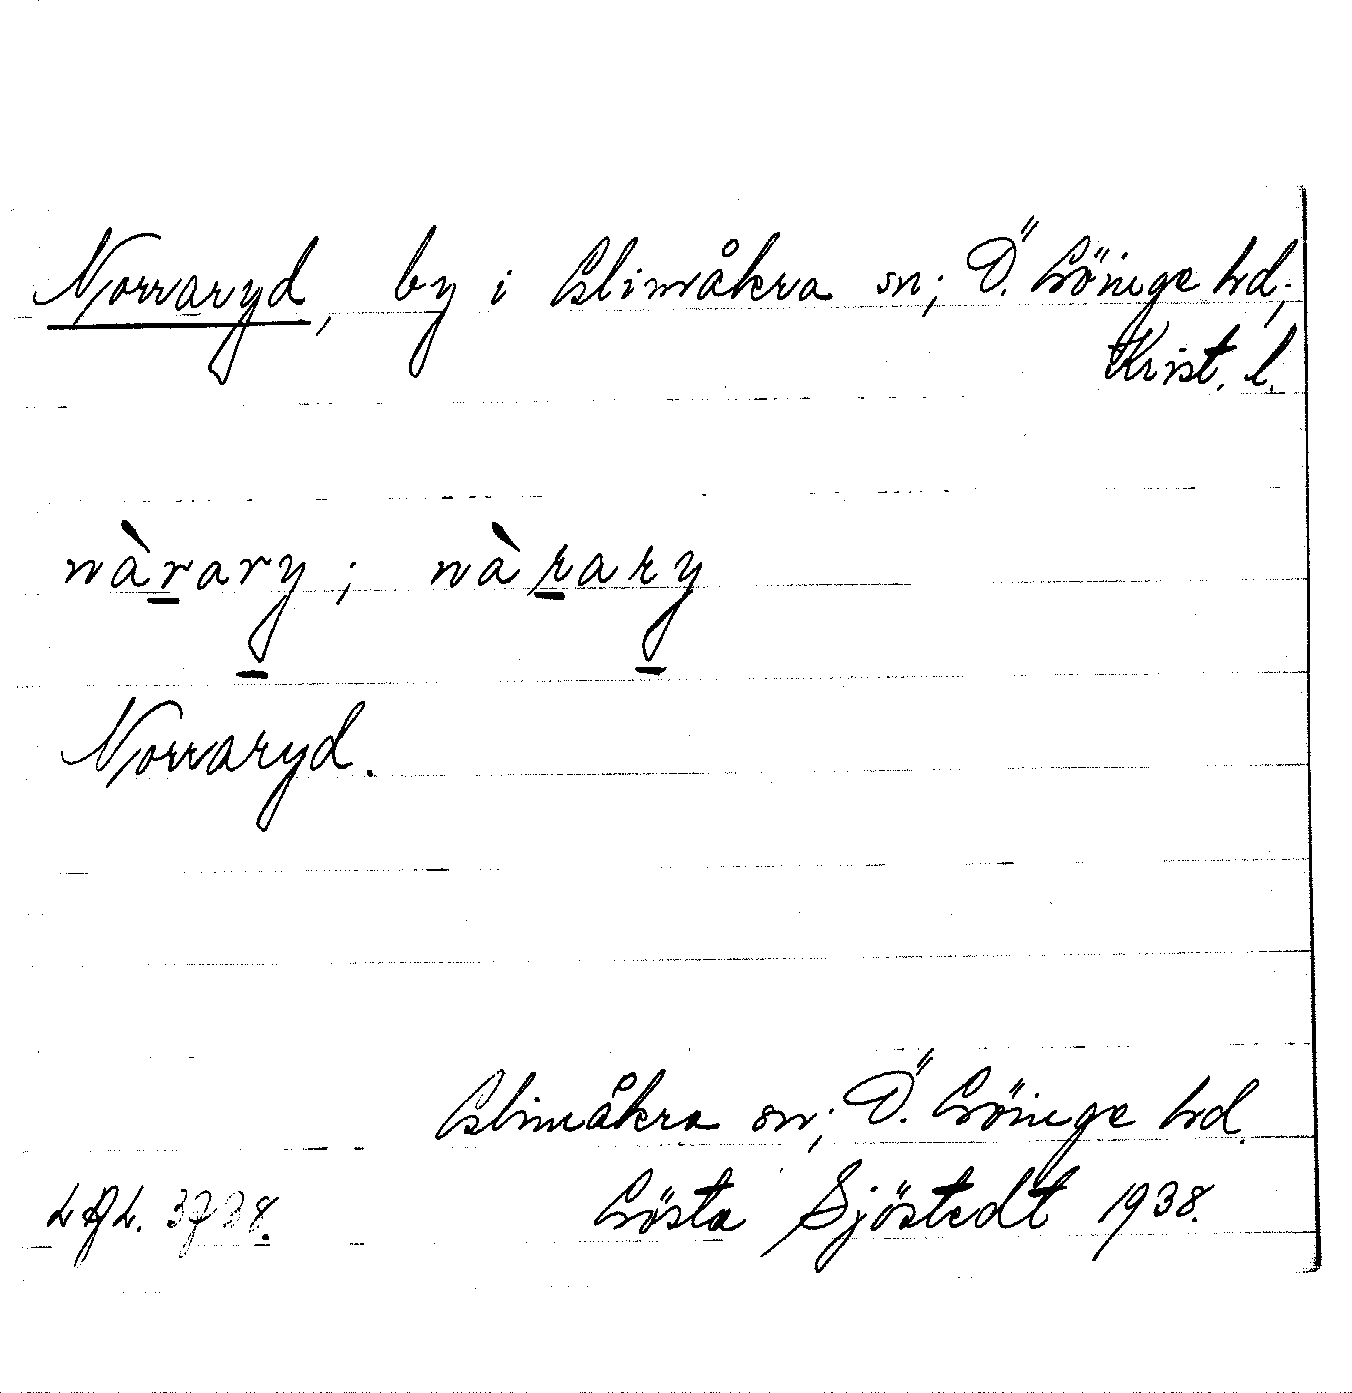 Norraryd, by i Glimåkra sn; Ö. Göinge hd;
Krist. l.
nàrary; nàrary
Norraryd.
Glimåkra sn; Ö. Göinge hd.
Gösta Sjöstedt 1938.